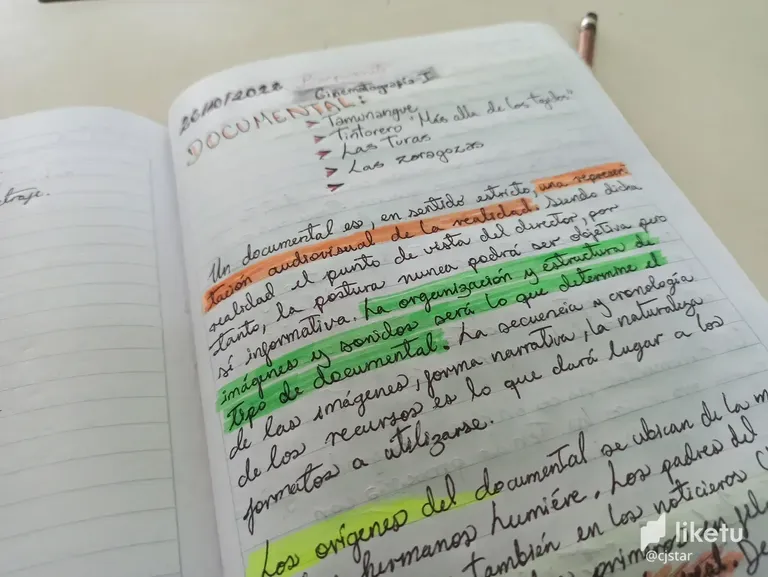 traje.
Cinematografía I
DOCUMENTAL:
➤ Tamunangue
➤ Tintorero "Más alla de los tejidos"
➤ Las Turas
➤ Las zaragozas
➤
Un documental es, en sentido estricto, una represen
tación audiovisual de la realidad. Siendo dicha
realidad el punto de vista del director, por
tanto, la postura nunca podrá ser objetiva pero
sí informativa. La organización y estructura de
imágenes y sonidos será lo que determine el
tipo de documental. La secuencia y cronología
de las imágenes, forma narrativa, la naturaleza
de los recursos es lo que dará lugar a los
formatos a utilizarse.
Los orígenes del documental se ubican de la m
hermanos Lumiére. Los padres del
también en los noticieros (
liketu
@cjstar